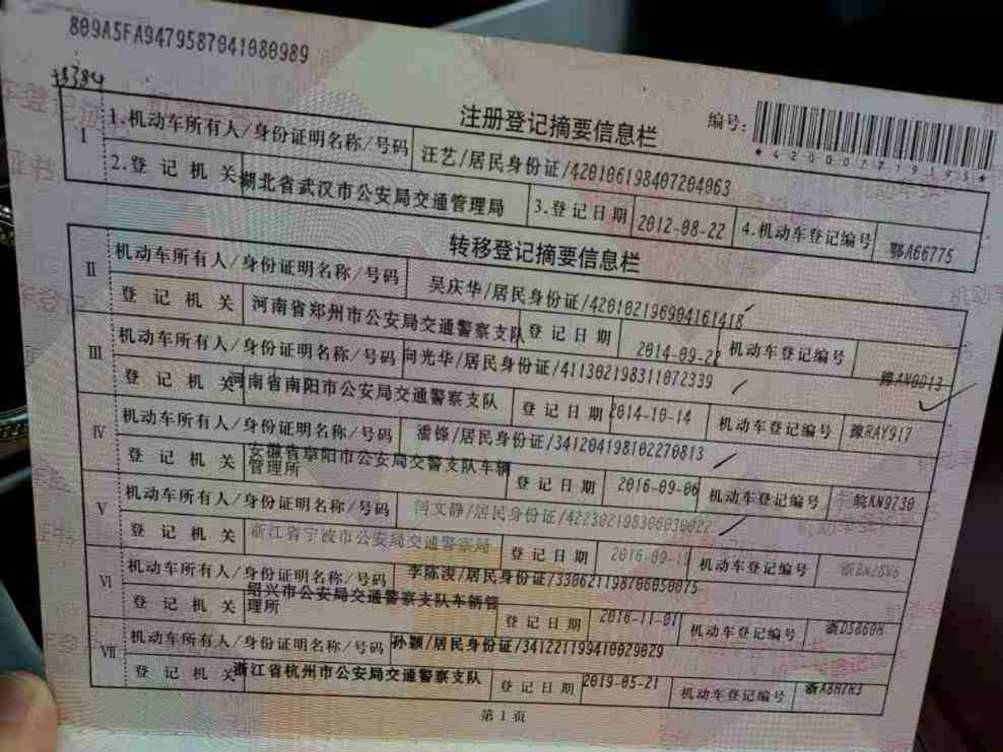 809A5FA9479587041080989
注册登记摘要信息栏
编号:
*420007719195*
I
1.机动车所有人/身份证明名称/号码
汪艺/居民身份证/420106198407204063
2.登记机关
湖北省武汉市公安局交通管理局
3.登记日期
2012-08-22
4.机动车登记编号
鄂A66775
转移登记摘要信息栏
II
机动车所有人/身份证明名称/号码
吴庆华/居民身份证/420102196904161418
登记机关
河南省郑州市公安局交通警察支队
登记日期
2014-09-22
机动车登记编号
III
机动车所有人/身份证明名称/号码
向光华/居民身份证/411302198311072339
登记机关
河南省南阳市公安局交通警察支队
登记日期
2014-10-14
机动车登记编号
豫RAY917
IV
机动车所有人/身份证明名称/号码
潘锋/居民身份证/341204198102270813
登记机关
安徽省阜阳市公安局交警支队车辆
管理所
登记日期
2016-09-06
机动车登记编号
皖KN9730
V
机动车所有人/身份证明名称/号码
闫文静/居民身份证/422302198306030022
登记机关
浙江省宁波市公安局交通警察局
登记日期
2016-09-19
机动车登记编号
VI
机动车所有人/身份证明名称/号码
李陈浚/居民身份证/330621198706050075
登记机关
绍兴市公安局交通警察支队车辆管
理所
登记日期
2016-11-01
机动车登记编号
VII
机动车所有人/身份证明名称/号码
孙颖/居民身份证/341221199410029029
登记机关
浙江省杭州市公安局交通警察支队
登记日期
2019-05-21
机动车登记编号
第1页